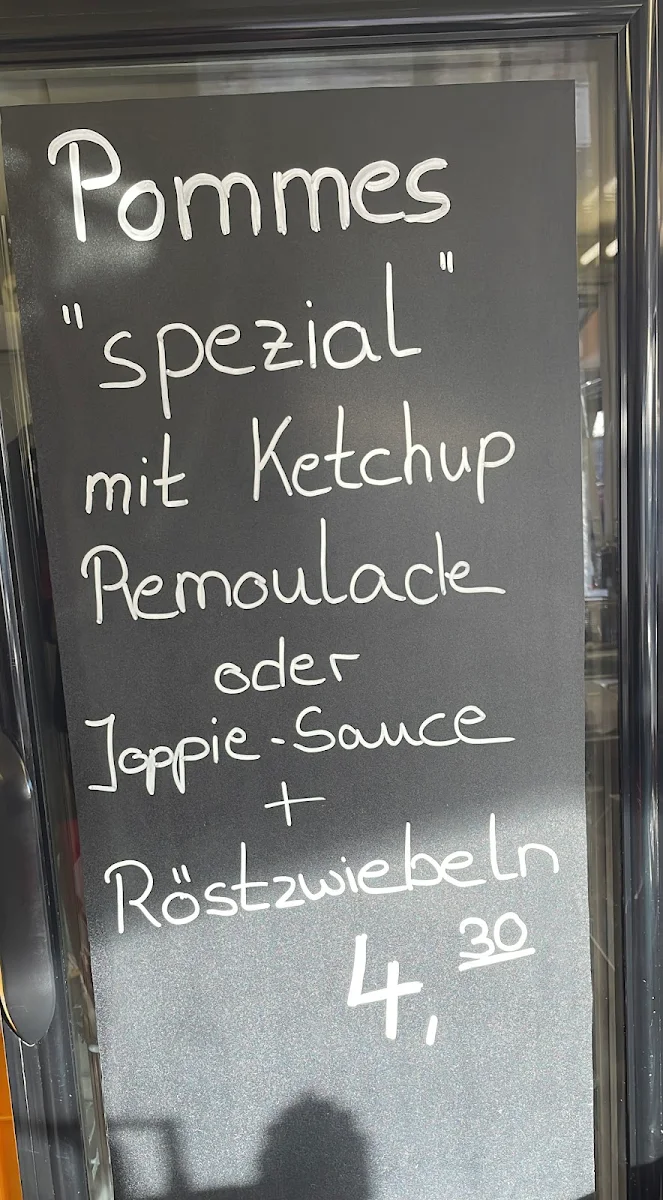 Pommes
"spezial"
mit Ketchup
Remoulade
oder
Joppie-Sauce
+
Röstzwiebeln
4,30